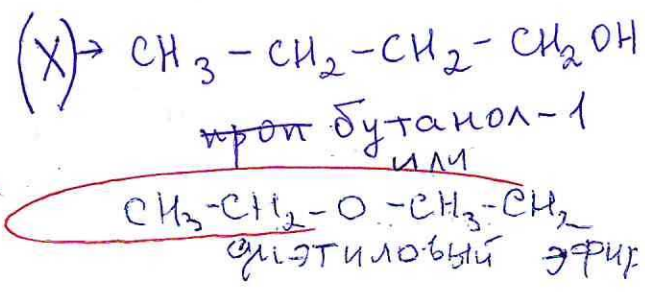 (X)→ CH₃ – CH₂ – CH₂ – CH₂OH
проп бутанол-1
или
CH₃-CH₂-O-CH₃-CH₂
диэтиловый эфир